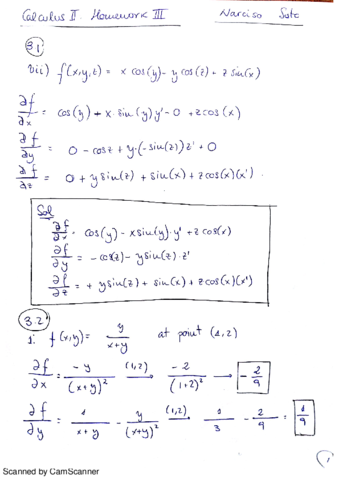 Calculus II. Homework III Narciso Soto
3.1
vii) f(x,y,z) = x cos(y) - y cos(z) + z sin(x)
∂f/∂x = cos(y) + x·sin(y) y' - 0 + z cos(x)
∂f/∂y = 0 - cos z + y·(-sin(z)) z' + 0
∂f/∂z = 0 + y sin(z) + sin(x) + z cos(x)(x')
Sol
∂f/∂x = cos(y) - x sin(y)·y' + z cos(x)
∂f/∂y = - cos(z) - y sin(z)·z'
∂f/∂z = + y sin(z) + sin(x) + z cos(x)(x')
3.2
1: f(x,y) = y/(x+y) at point (1,2)
∂f/∂x = -y/(x+y)² (1,2)→ -2/(1+2)² → -2/9
∂f/∂y = 1/(x+y) - y/(x+y)² (1,2)→ 1/3 - 2/9 = 1/9
1
Scanned by CamScanner